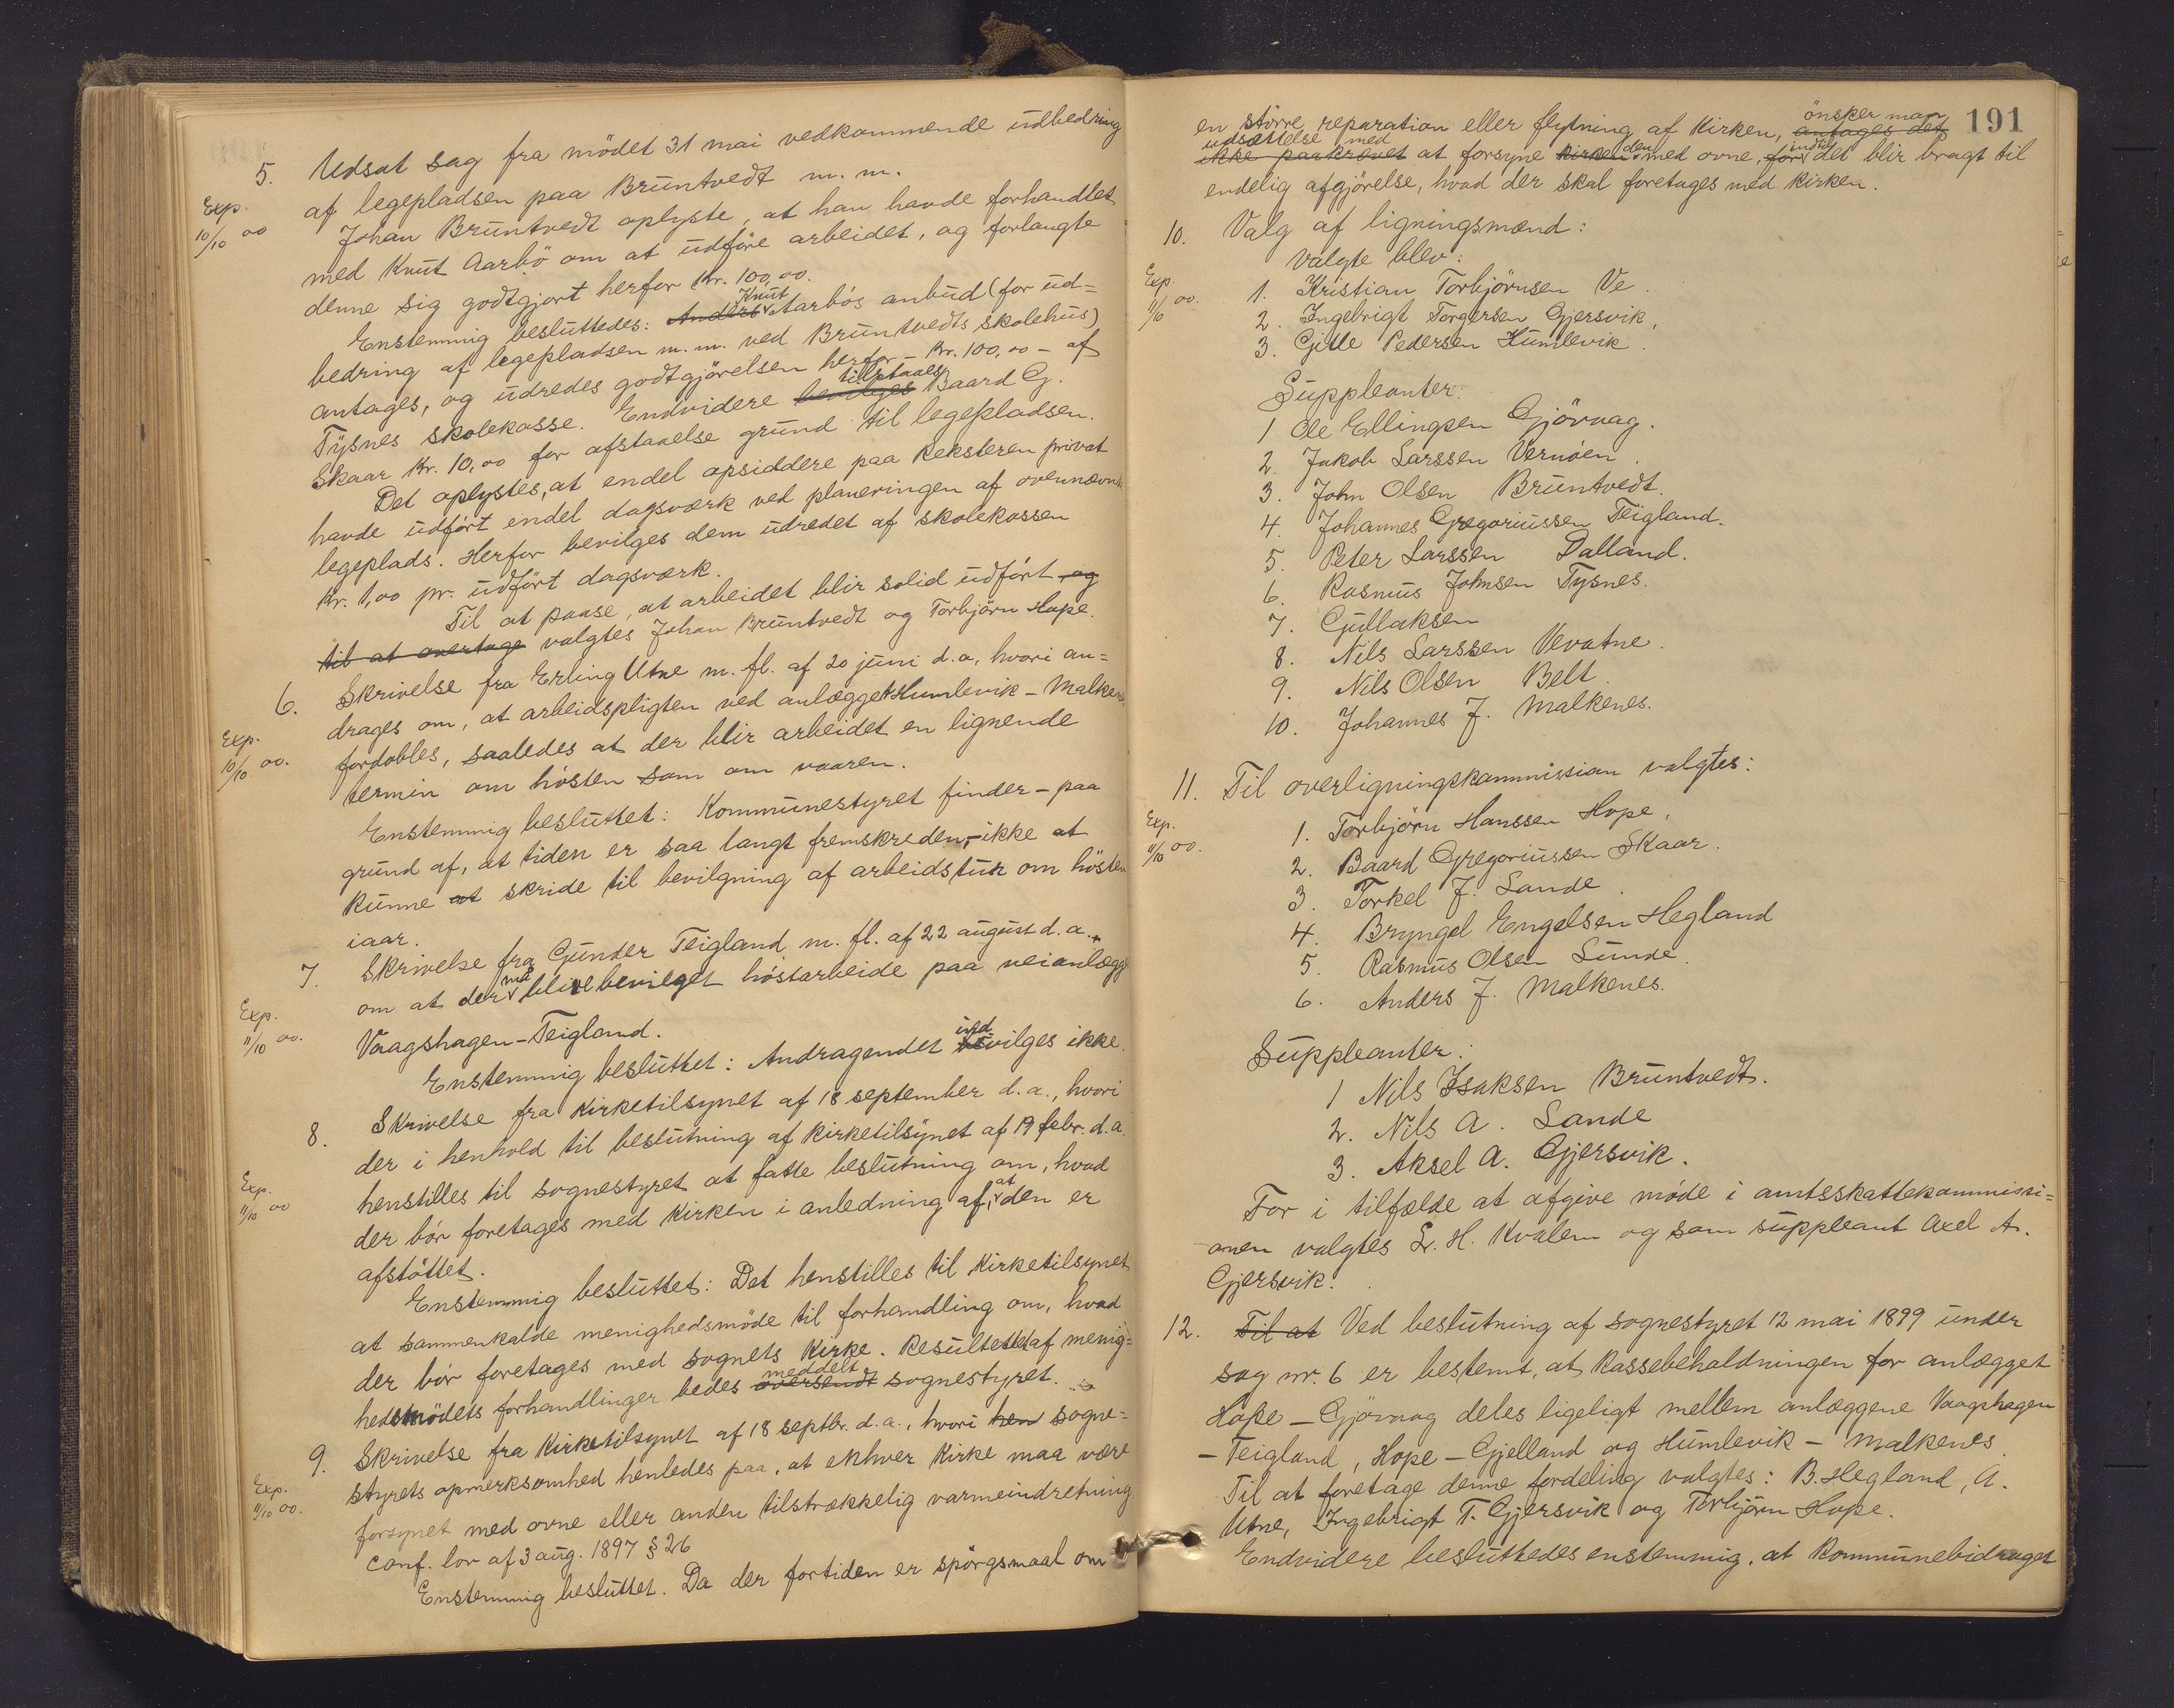 5. Udsat sag fra mödet 31 mai vedkommende udbedring
Exp. 10/10 00
af legepladsen paa Bruntvedt m. m.
Johan Bruntvedt oplyste, at han havde forhandlet
med Knut Aarbö om at udföre arbeidet, og forlangte
denne sig godtgjort herfor Kr. 100,00.
Enstemmig besluttedes: Anders Knut Aarbös anbud (for ud=
bedring af legepladsen m. m. ved Bruntvedts skolehus)
antages, og udredes godtgjörelsen herfor – Kr. 100,00 – af
Tysnes skolekasse. Endvidere bevilges tilstaaes Baard G.
Skaar Kr. 10,00 for afstaaelse grund til legepladsen.
Det oplystes, at endel opsiddere paa Reksteren privat
havde udfört endel dagsværk ved planeringen af ovennævnte
legeplads. Herfor bevilges dem udredet af skolekassen
Kr. 1,00 pr. udfört dagsværk.
Til at paase, at arbeidet blir solid udfört og
til at overtage valgtes Johan Bruntvedt og Torbjörn Hope.
6. Skrivelse fra Erling Utne m. fl. af 20 juni d. a, hvori an=
drages om, at arbeidspligten ved anlægget Humlevik – Malkenes
Exp. 10/10 00.
fordobles, saaledes at der blir arbeidet en lignende
termin om hösten som om vaaren.
Enstemmig besluttet: Kommunestyret finder – paa
grund af, at tiden er saa langt fremskreden, – ikke at
kunne at skride til bevilgning af arbeidstur om hösten
iaar.
7. Skrivelse fra Gunder Teigland m. fl. af 22 august d. a.
om at der maa blive bevilget höstarbeide paa veianlægget
Exp. 11/10 00.
Vaagshagen – Teigland.
Enstemmig besluttet: Andragendet indvilges ikke.
8. Skrivelse fra Kirketilsynet af 18 september d. a., hvori
der i henhold til beslutning af kirketilsynet af 19 febr. d. a.
Exp. 11/10 00
henstilles til sognestyret at fatte beslutning om, hvad
der bör foretages med Kirken i anledning af, at den er
afstöttet.
Enstemmig besluttet: Det henstilles til Kirketilsynet
at sammenkalde menighedsmöde til forhandling om, hvad
der bör foretages med sognets Kirke. Resultetet af menig=
hedsmödets forhandlinger bedes oversendt meddelt sognestyret.
9. Skrivelse fra Kirketilsynet af 18 septbr. d. a., hvori hen sogne=
styrets opmerksomhed henledes paa, at ekhver Kirke maa være
Exp. 11/10 00.
forsynet med ovne eller anden tilstrækkelig varmeindretning
conf. lov af 3 aug. 1897 § 26
Enstemmig besluttet. Da der fortiden er spörgsmaal om
191
en större reparation eller flytning af Kirken, antages det önsker man
ikke paakrævet udsættelse med at forsyne Kirken den med ovne, för indtil det blir bragt til
endelig afgjörelse, hvad der skal foretages med Kirken.
10. Valg af ligningsmænd:
Valgte blev:
Exp. 11/10 00.
1. Kristian Torbjörnsen Ve.
2. Ingebrigt Torgersen Gjersvik,
3. Gitle Pedersen Humlevik.
Suppleanter:
1 Ole Ellingsen Gjövaag.
2. Jakob Larssen Vernöen.
3. John Olsen Bruntvedt.
4. Johannes Gregoriussen Teigland.
5. Peter Larssen Dalland.
6. Rasmus Johnsen Tysnes.
7. Gullaksen
8. Nils Larssen Vevatne.
9. Nils Olsen Belt.
10. Johannes J. Malkenes.
11. Til overligningskommission valgtes:
Exp. 11/10 00.
1. Torbjörn Hanssen Hope,
2. Baard Gregoriussen Skaar.
3. Torkel J. Lande.
4. Bryngel Engelsen Hegland
5. Rasmus Olsen Lunde.
6. Anders J. Malkenes.
Suppleanter:
1 Nils Isaksen Bruntvedt.
2. Nils A. Lande
3. Aksel A. Gjersvik.
For i tilfælde at afgive möde i amtsskattekommissi=
onen valgtes L. H. Kvalem og som suppleant Axel A.
Gjersvik.
12. Til at Ved beslutning af sognestyret 12 mai 1899 under
sag nr. 6 er bestemt, at Kassebeholdningen for anlægget
Hope – Gjövaag deles ligeligt mellem anlæggene Vaagshagen
– Teigland, Hope – Gjelland og Humlevik – Malkenes.
Til at foretage denne fordeling valgtes: B. Hegland, A.
Utne, Ingebrigt T. Gjersvik og Torbjörn Hope.
Endvidere besluttedes enstemmig, at Kommunebidraget